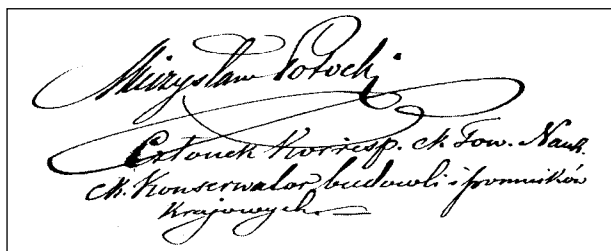 Mieczysław Potocki
Członek Korresp. ck. Tow. Nauk.
ck. Konserwator budowli i pomników
Krajowych